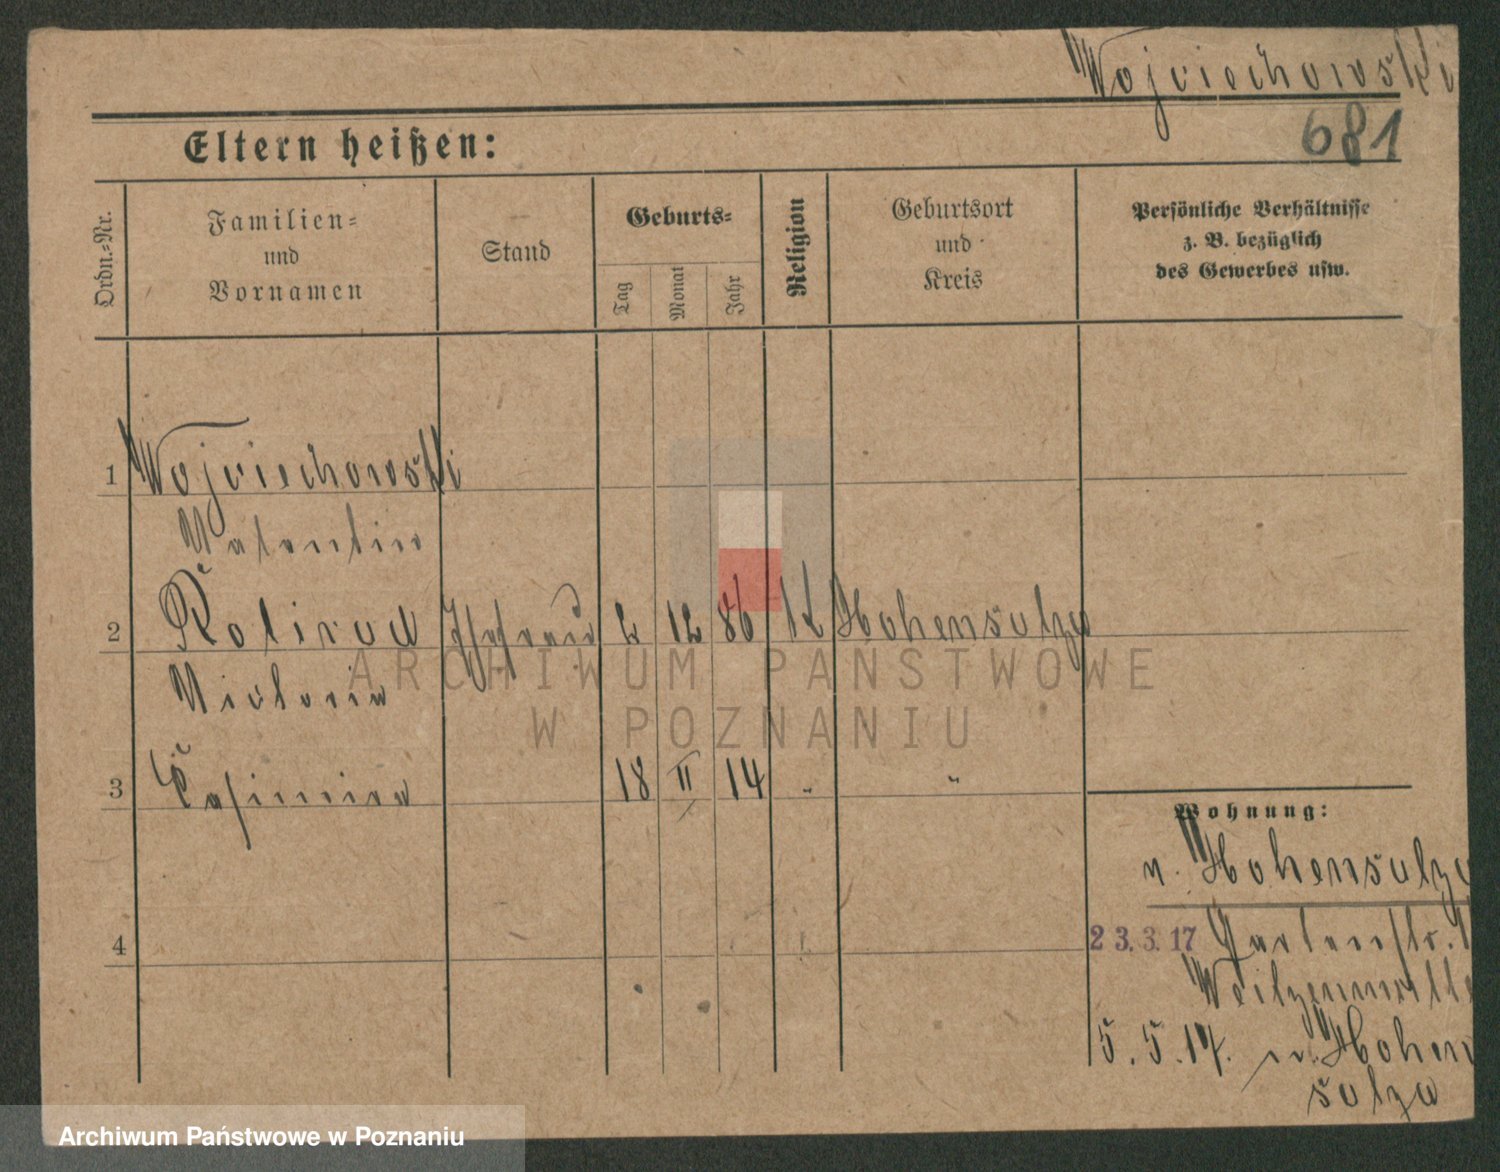 Wojciechowski
681
Eltern heißen:
Ordn.-Nr.
Familien-
und
Vornamen
Stand
Geburts-
Tag
Monat
Jahr
Religion
Geburtsort
und
Kreis
Persönliche Verhältnisse
z. B. bezüglich
des Gewerbes usw.
1 Wojciechowski
Valentin
2 Ehefrau 2 12 86 K Hohensalza
Victoria
3 Casimira 18 II 14 " "
Wohnung:
n. Hohensalza
23.3.17 Gartenstr.
5.5.17. n. Hohen
salza
4
ARCHIWUM PAŃSTWOWE
W POZNANIU
Archiwum Państwowe w Poznaniu